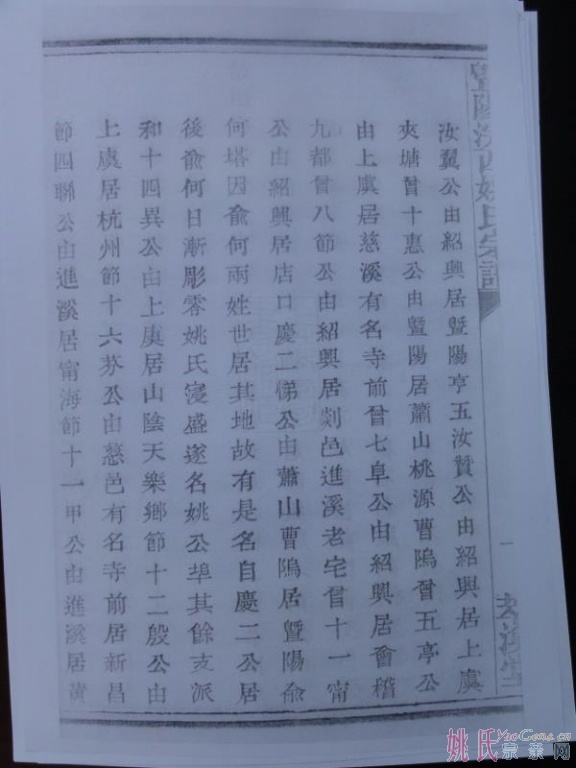 暨陽姚氏宗譜
汝翼公由紹興居暨陽亨五汝贊公由紹興居上虞
夾塘曾十惠公由暨陽居蕭山桃源曹塢曾五亭公
由上虞居慈溪有名寺前曾七阜公由紹興居會稽
九都曾八節公由紹興居剡邑進溪老宅曾十一甯
公由紹興居店口慶二悌公由蕭山曹隖居暨陽俞
何塔因俞何兩姓世居其地故有是名自慶二公居
後俞何日漸彫零姚氏寖盛遂名姚公埠其餘支派
和十四異公由上虞居山陰天樂鄉節十二殷公由
上虞居杭州節十六芬公由慈邑有名寺前居新昌
節四聯公由進溪居甯海節十一甲公由進溪居黃
一
姚氏宗亲网
YaoGens.cn